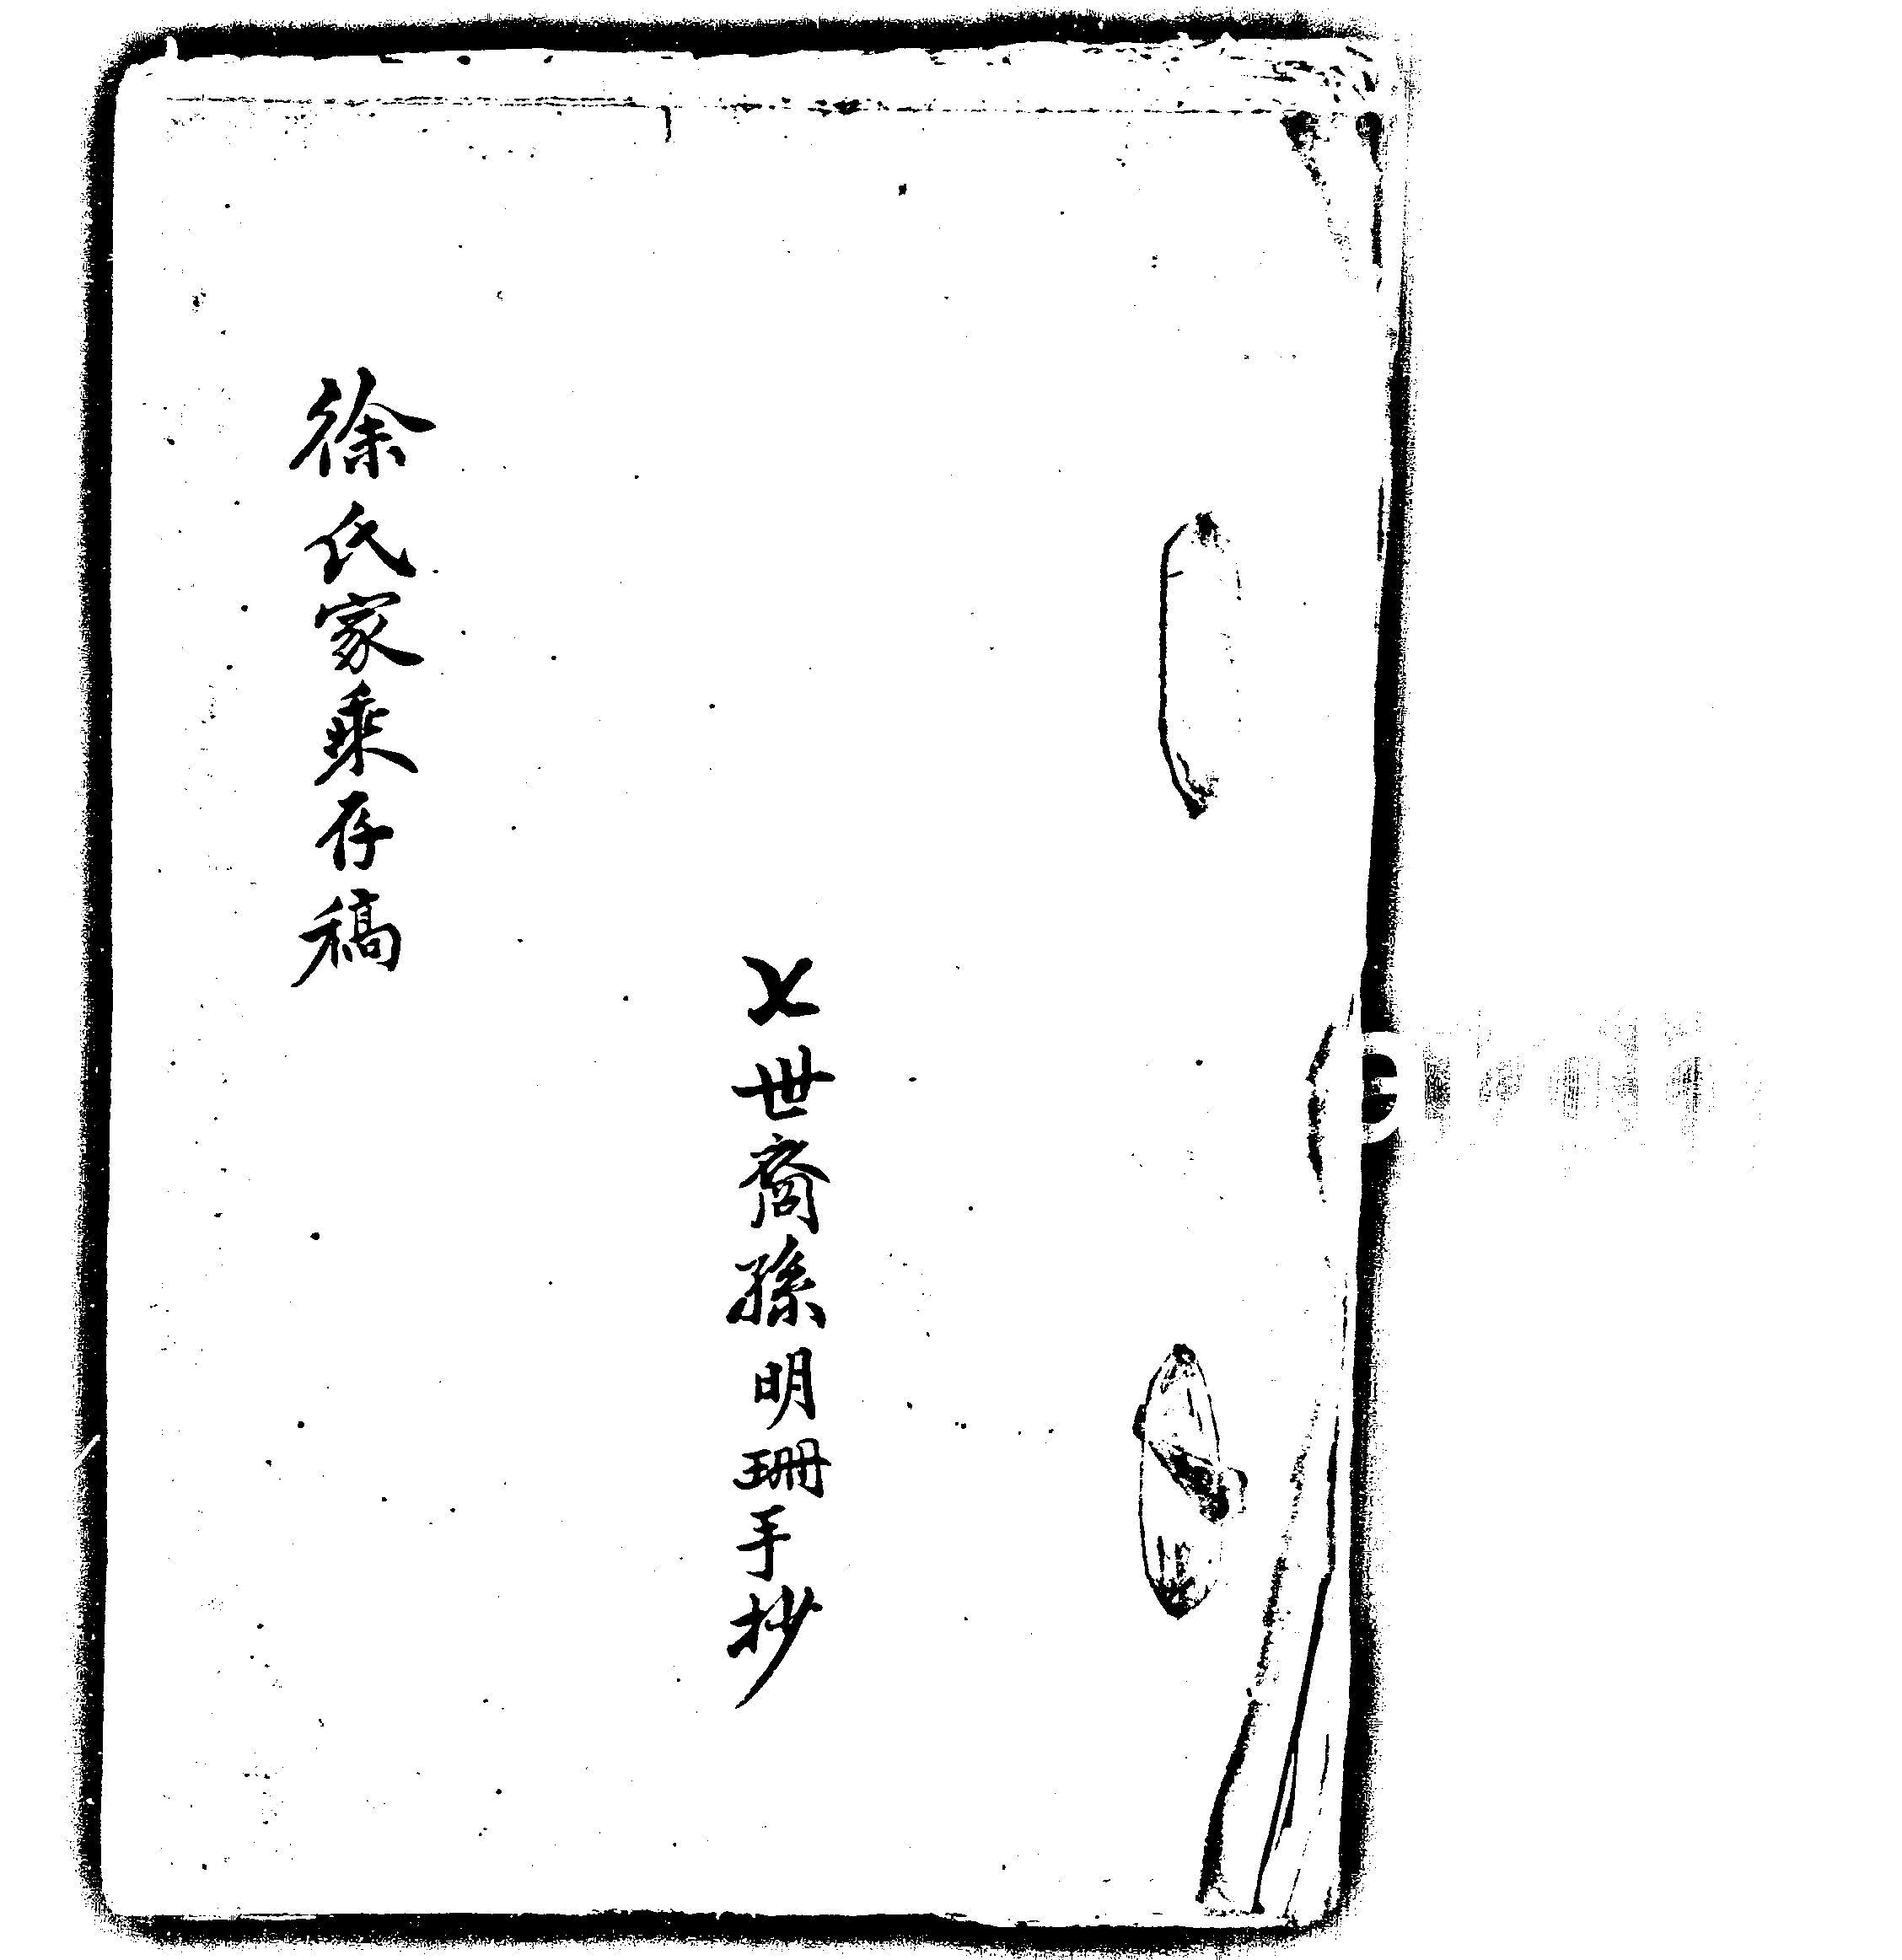 世裔孫明珊手抄
徐氏家乘存稿